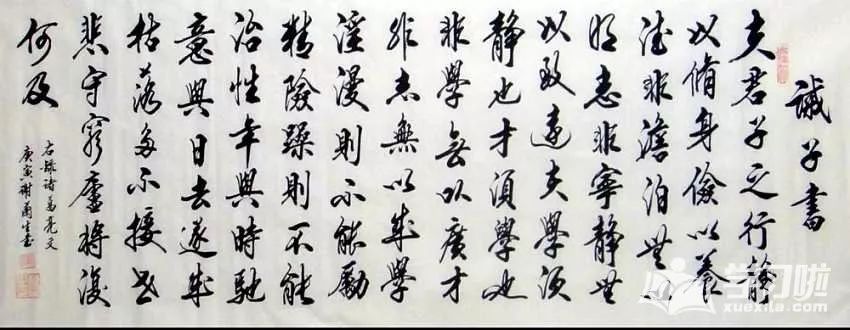 誡子書
夫君子之行靜
以脩身儉以養
德非澹泊無以
明志非寧靜無
以致遠夫學須
靜也才須學也
非學無以廣才
非志無以成學
淫漫則不能勵
精險躁則不能
治性年與時馳
意與日去遂成
枯落多不接世
悲守窮廬將復
何及
右錄諸葛亮文
庚寅謝生書
学习啦
xuexila.com